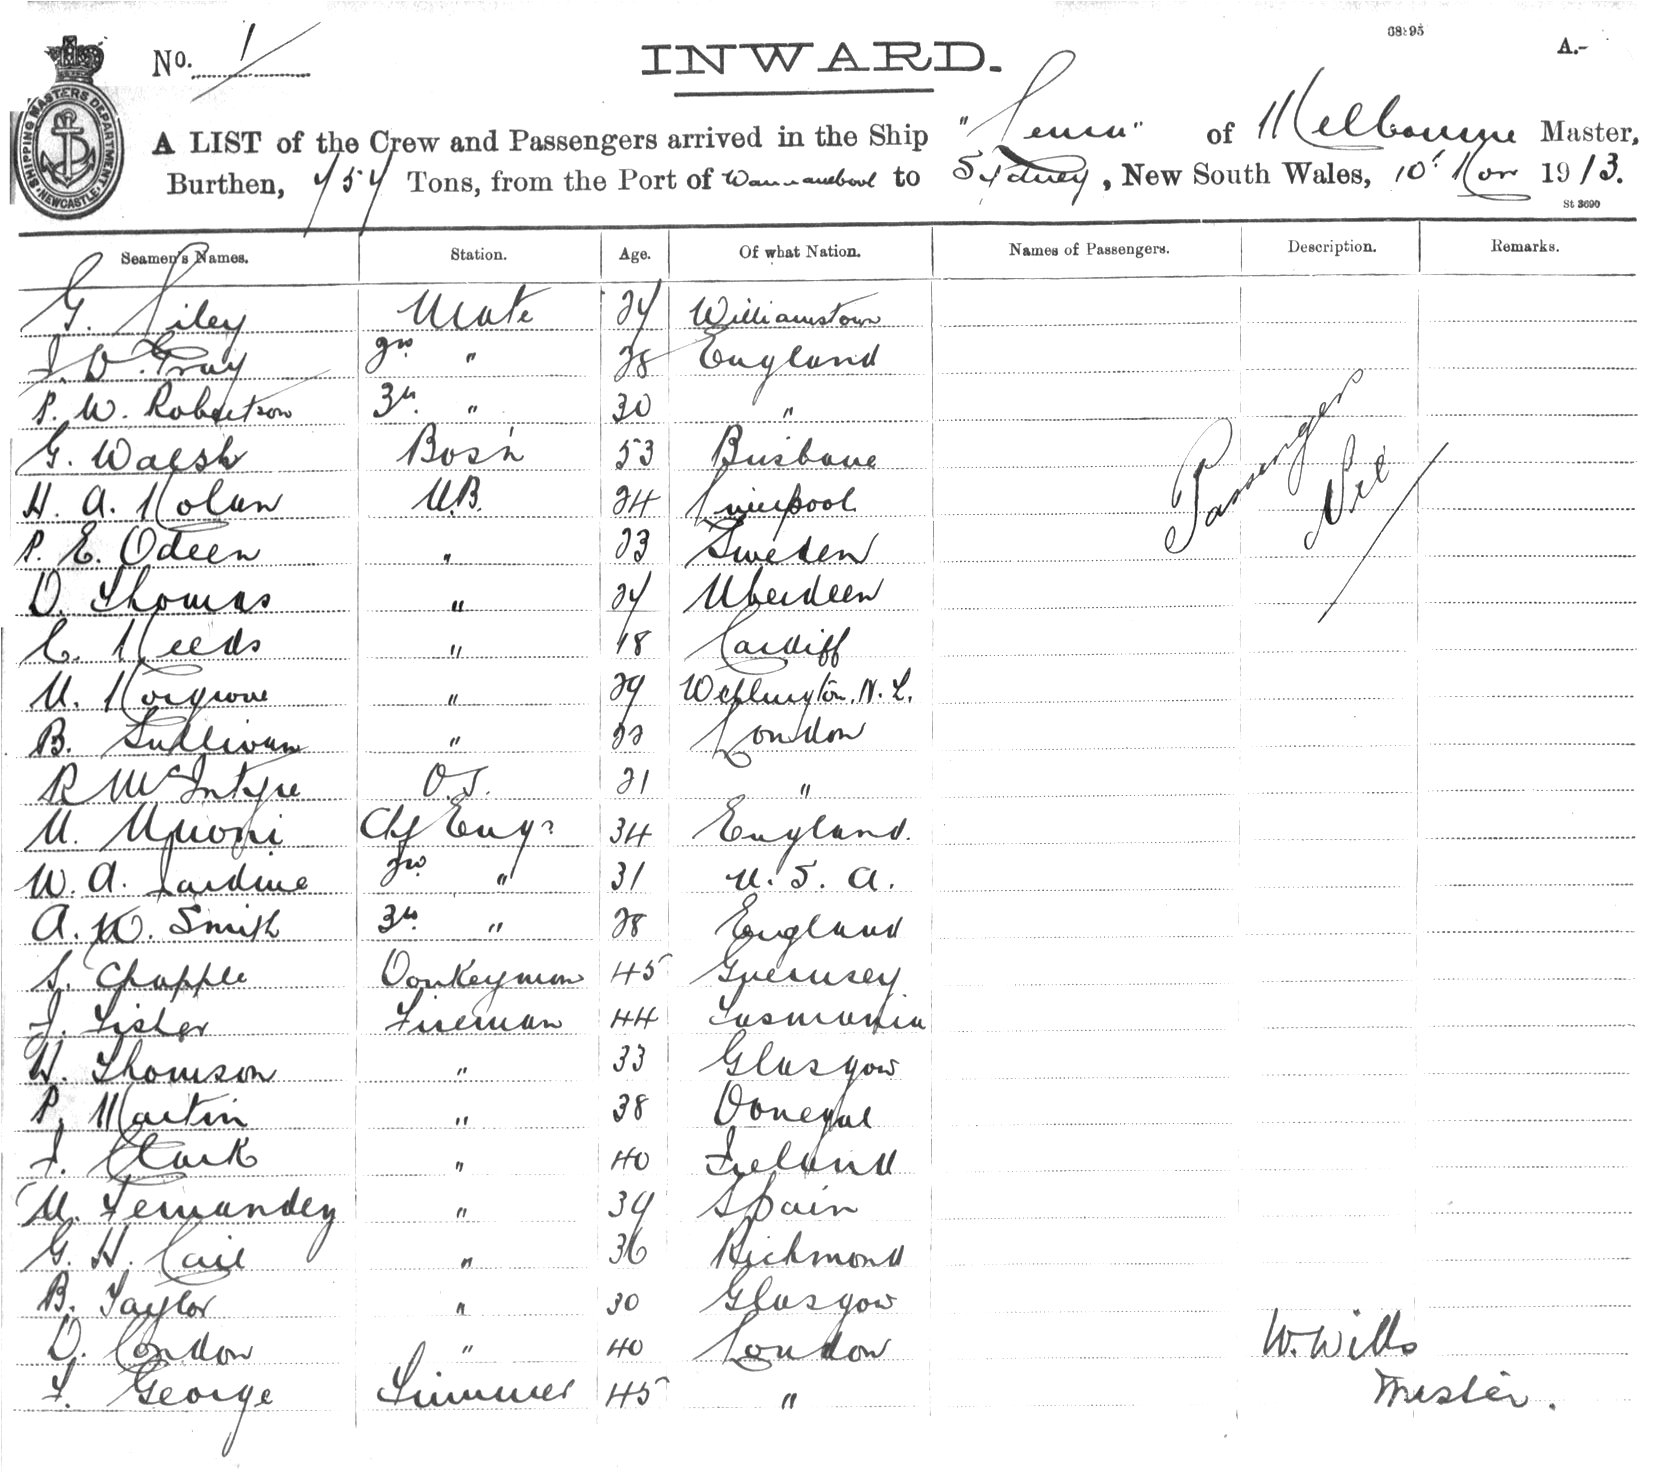 68:95
A.-
No. 1
INWARD.
A LIST of the Crew and Passengers arrived in the Ship " " of Melbourne Master,
Burthen, Tons, from the Port of Warrnambool to Sydney, New South Wales, 10t Nov 1913.
St 3690
SHIPPING MASTERS DEPARTMENT NEWCASTLE
Seamen's Names. Station. Age. Of what Nation. Names of Passengers. Description. Remarks.
G. Riley Mate Williamstown
J. D. Gray 2nd " 28 England
P. W. Robertson 3rd " 30 "
G. Walsh Bos'n 53 Brisbane
H. A. Nolan A.B. 24 Liverpool
P. E. Odeen " 23 Sweden
D. Thomas " Aberdeen
C. Needs " 18 Cardiff
M. " 29 Wellington, N.Z.
B. Sullivan " 22 London
R McIntyre O.S. 21 "
M. Chf Engr 34 England.
W. A. Jardine 2nd " 31 U. S. A.
A. W. Smith 3rd " 28 England
S. Chapple Donkeyman 45 Guernsey
J. Fisher Fireman 44 Tasmania
W. Thomson " 33 Glasgow
P. Martin " 38 Donegal
J. Clark " 40 Ireland
M. Fernandez " 39 Spain
G. H. Cail " 36 Richmond
B. Taylor " 30 Glasgow
D. Condon " 40 London
F. George Trimmer 45 "
Passengers
Nil
W. Wills
Master.